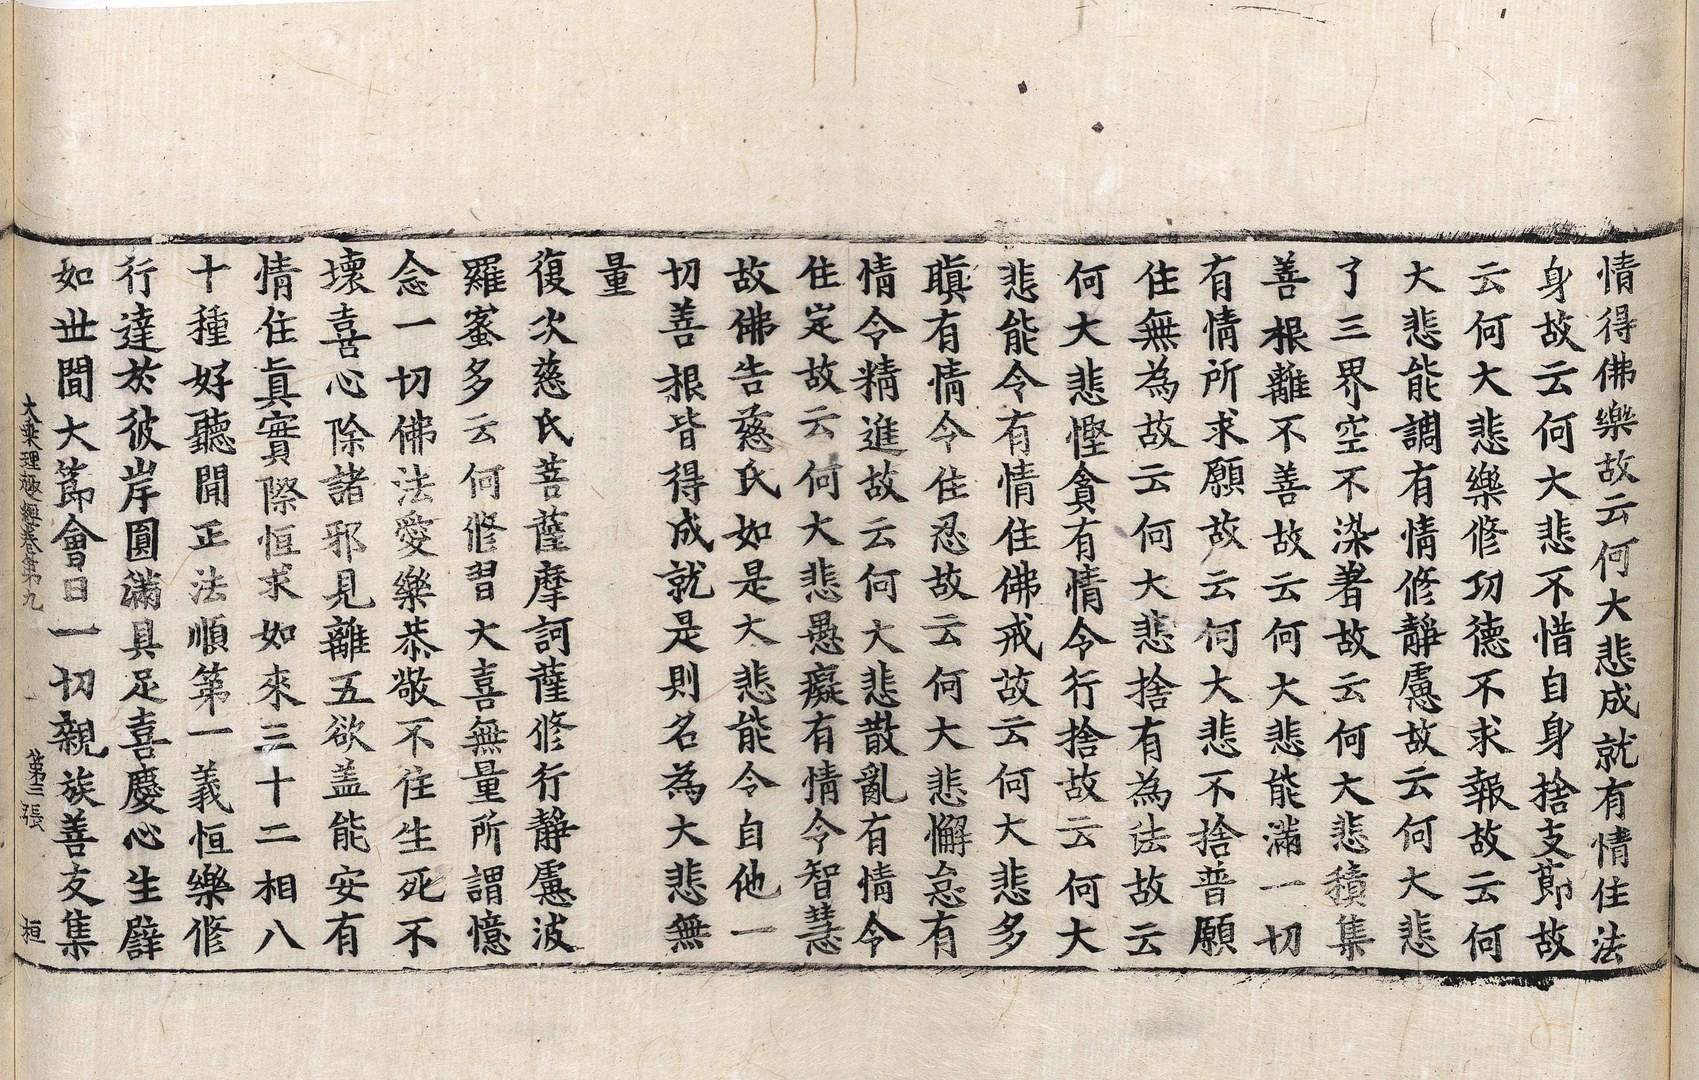 情得佛樂故云何大悲成就有情住法
身故云何大悲不惜自身捨支節故
云何大悲樂修功德不求報故云何
大悲能調有情修靜慮故云何大悲
了三界空不染著故云何大悲積集
善根離不善故云何大悲能滿一切
有情所求願故云何大悲不捨普願
住無為故云何大悲捨有為法故云
何大悲慳貪有情令行捨故云何大
悲能令有情住佛戒故云何大悲多
瞋有情令住忍故云何大悲懈怠有
情令精進故云何大悲散亂有情令
住定故云何大悲愚癡有情令智慧
故佛告慈氏如是大悲能令自他一
切善根皆得成就是則名為大悲無
量
復次慈氏菩薩摩訶薩修行靜慮波
羅蜜多云何修習大喜無量所謂憶
念一切佛法愛樂恭敬不住生死不
壞喜心除諸邪見離五欲盖能安有
情住真實際恒求如來三十二相八
十種好聽聞正法順第一義恒樂修
行達於彼岸圓滿具足喜慶心生譬
如世間大節會日一切親族善友集
大乘理趣經卷第九 第三張 桓